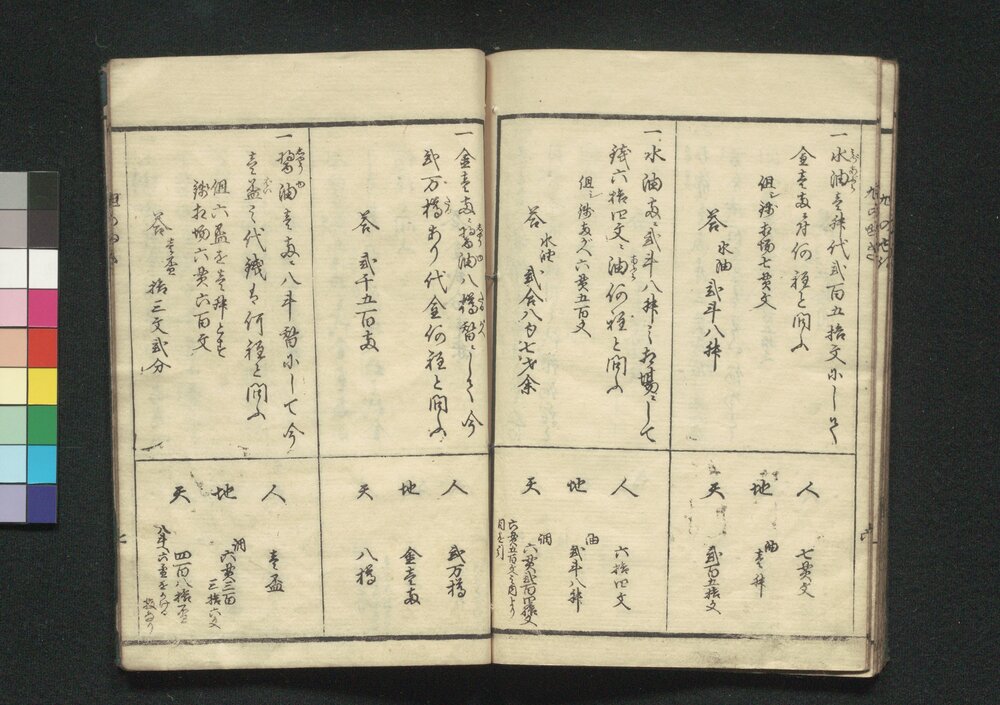 一水油壱升代弐百五拾文にして
金壱両ニ付何程と問ふ
但シ銭相場七貫文
答 水油 弐斗八升
人 七貫文
地 油 壱升
天 弐百五拾文
一水油両弐斗八升之相場ニして
銭六拾四文ニ油何程と問ふ
但シ銭両がへ六貫五百文
答 水油 弐合八勺七才余
人 六拾四文
地 油 弐斗八升
天
一金壱両ニ醤油八樽替ニして今
弐万樽あり代金何程と問ふ
答 弐千五百両
人 弐万樽
地 金壱両
天 八樽
一醤油壱両ニ八斗替にして今
壱盃之代銭者何程と問ふ
但六盃を壱升とす
銭相場六貫六百文
答 壱盃 拾三文弐分
人 壱盃
地 調 六貫三百三拾六文
天 四百八拾盃
八斗へ六盃をかける